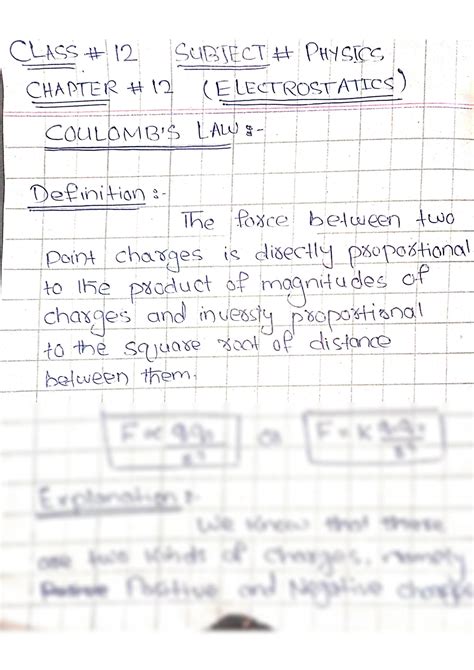 CLASS # 12 SUBJECT # PHYSICS
CHAPTER # 12 (ELECTROSTATICS)
COULOMB'S LAW:-
Definition:-
The force between two
point charges is directly proportional
to the product of magnitudes of
charges and inversly proportional
to the square root of distance
between them.
Explanation:-
We know that there
are two kinds of charges, namely
Positive and Negative